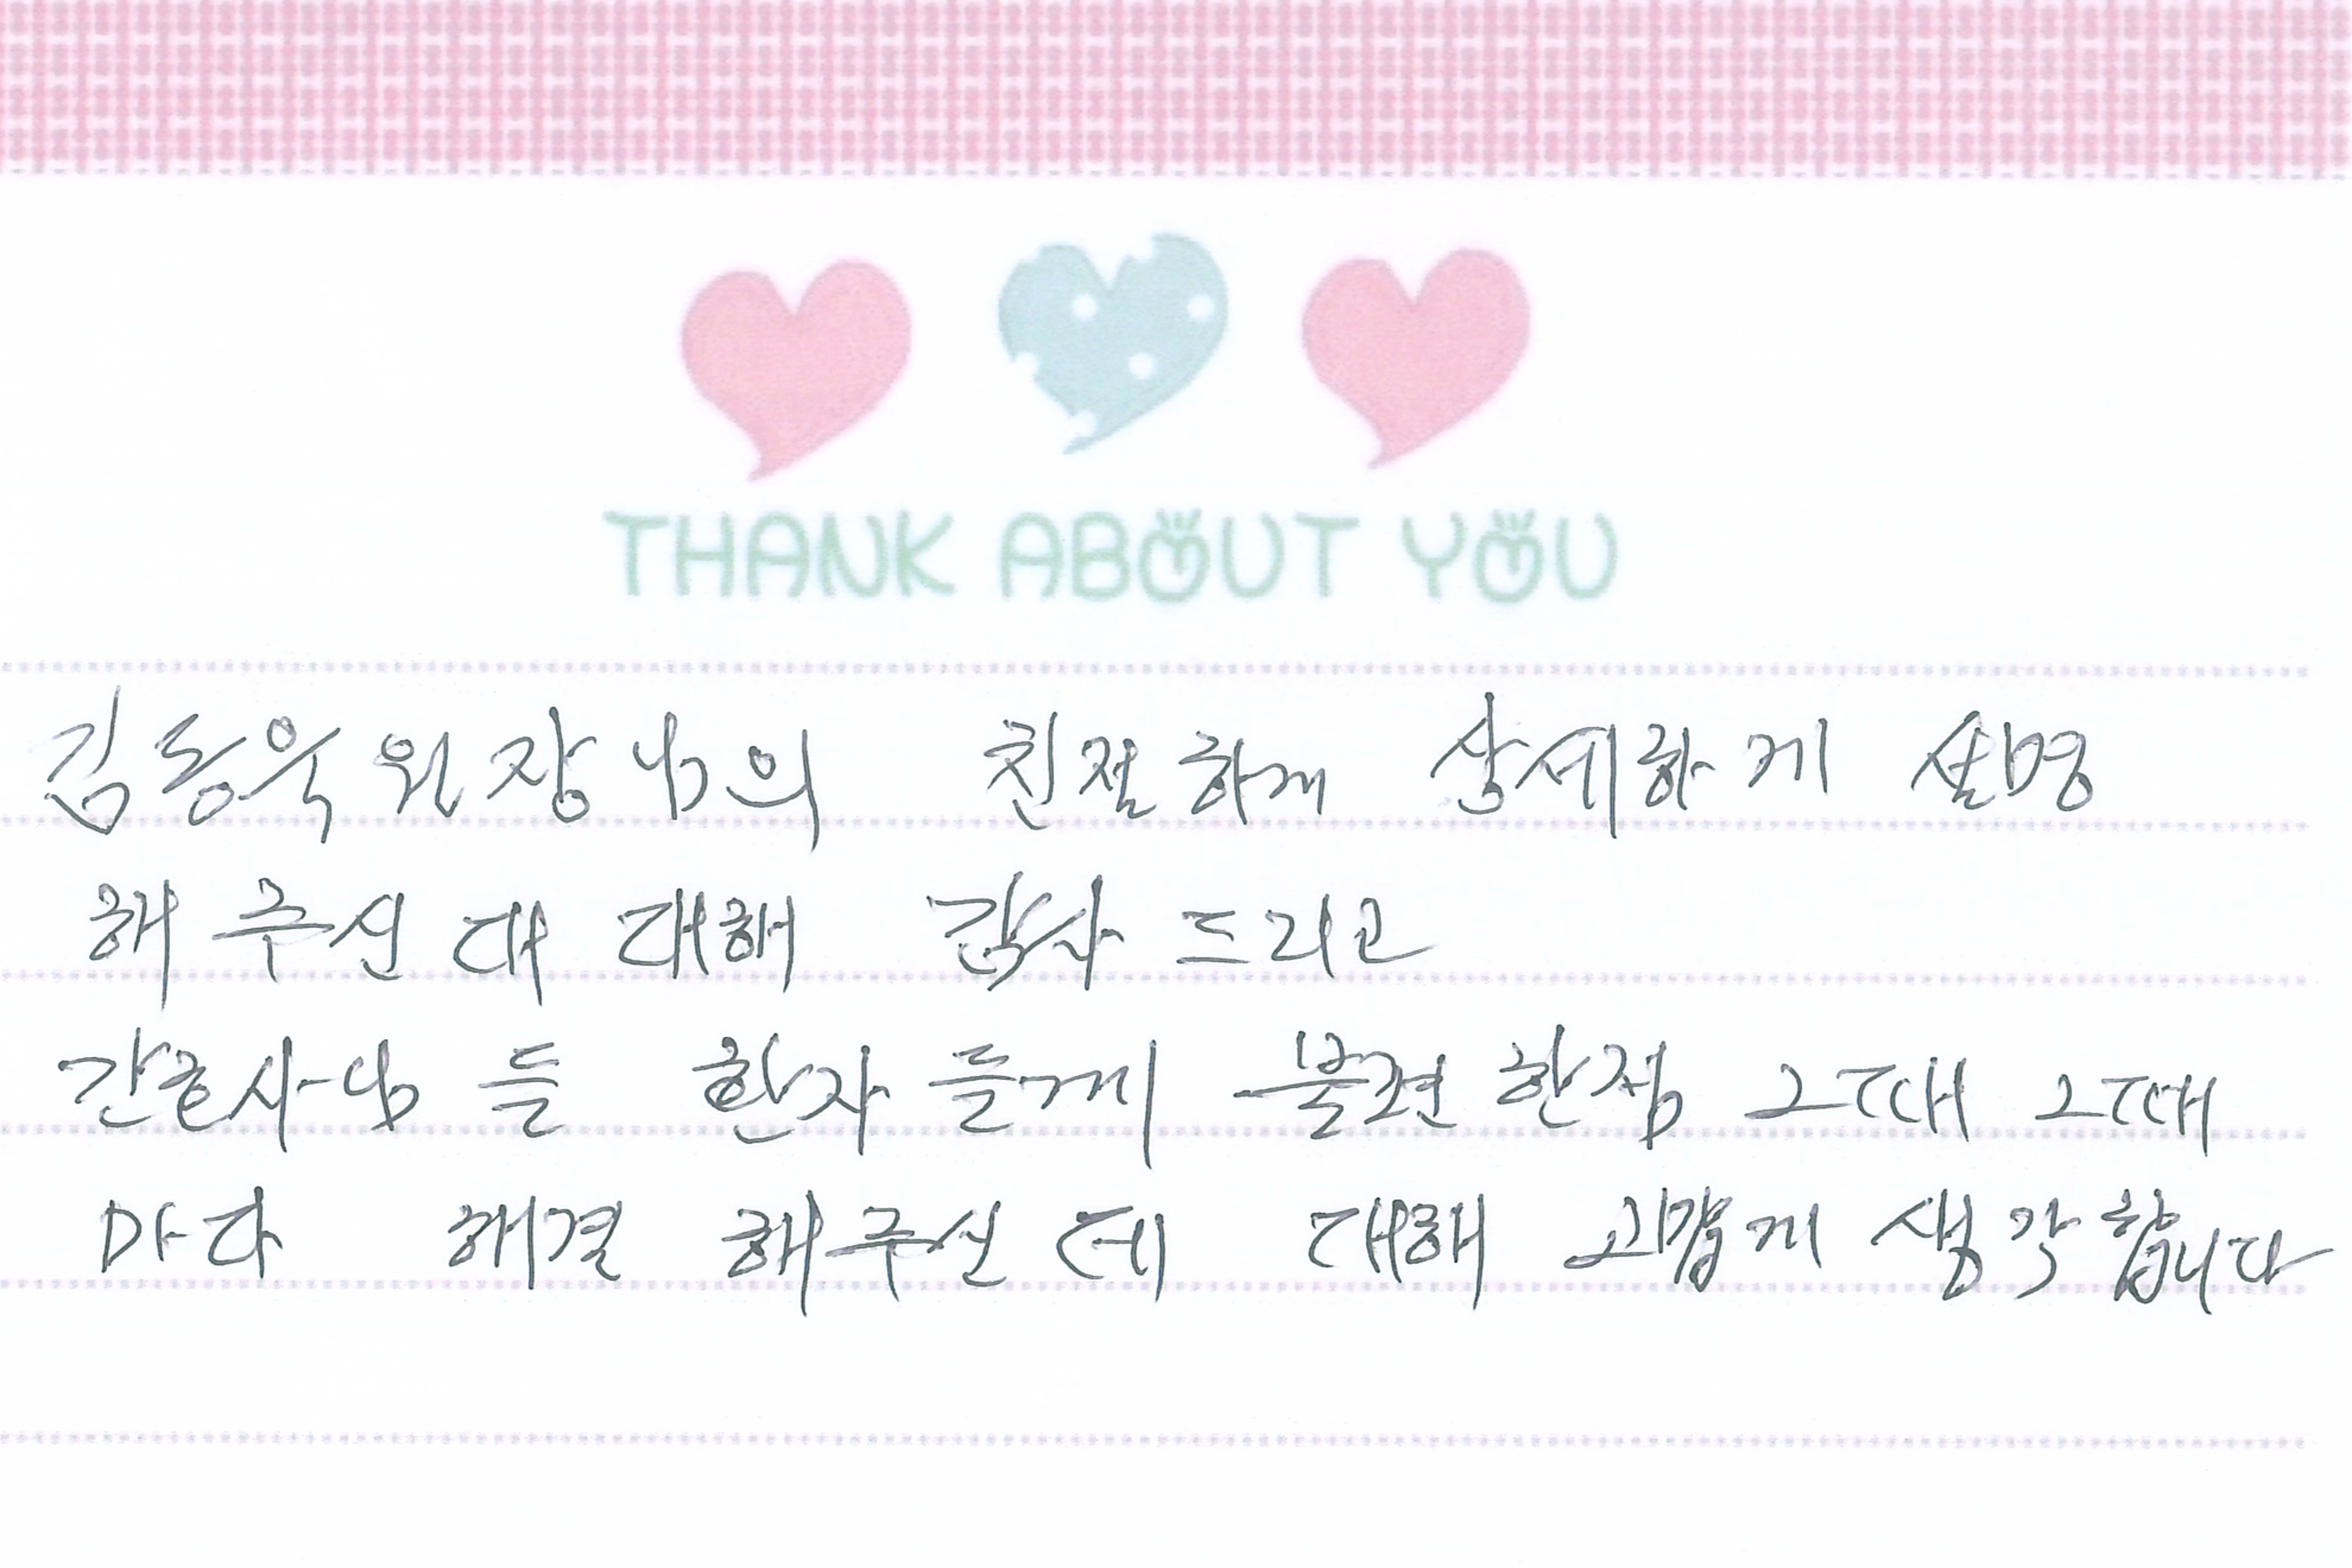 THANK ABOUT YOU
김동욱원장님의 친절하게 상세하게 설명
해 주신 대 대해 감사 드리고
간호사님 들 환자 들게 불편 한점 그때 그때
마다 해결 해주신 데 대해 고맙게 생각 합니다